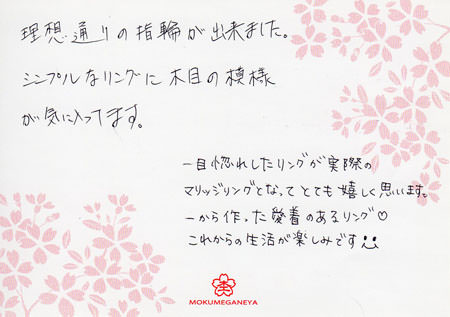 理想通りの指輪が出来ました。
シンプルなリングに木目の模様
が気に入ってます。
一目惚れしたリングが実際の
マリッジリングとなってとても嬉しく思います。
一から作った愛着のあるリング♡
これからの生活が楽しみです
MOKUMEGANEYA